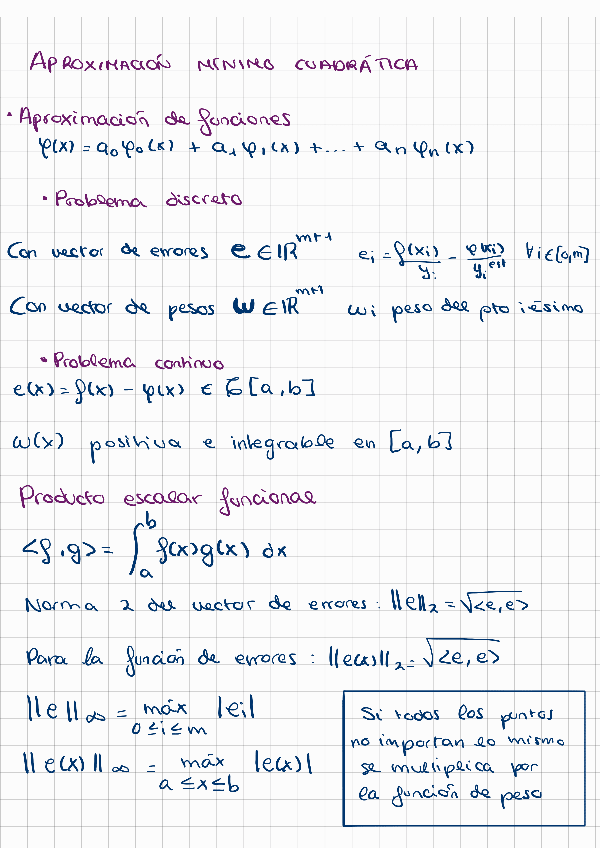 APROXIMACIÓN MÍNIMO CUADRÁTICA
• Aproximación de funciones
φ(x) = a₀φ₀(x) + a₁φ₁(x) + ... + aₙφₙ(x)
• Problema discreto
Con vector de errores e ∈ ℝᵐ⁺¹ eᵢ = f(xᵢ)/yᵢ - φ(xᵢ)/yᵢᵉˢᵗ ∀i∈[0,m]
Con vector de pesos w ∈ ℝᵐ⁺¹ wi peso del pto iésimo
• Problema continuo
e(x) = f(x) - φ(x) ∈ C[a,b]
w(x) positiva e integrable en [a,b]
Producto escalar funcional
<f,g> = ∫ₐᵇ f(x)g(x) dx
Norma 2 del vector de errores: ||e||₂ = √<e,e>
Para la función de errores: ||e(x)||₂ = √<e,e>
||e||∞ = máx |ei|
0≤i≤m
||e(x)||∞ = máx |e(x)|
a≤x≤b
Si todos los puntos
no importan lo mismo
se multiplica por
la función de peso